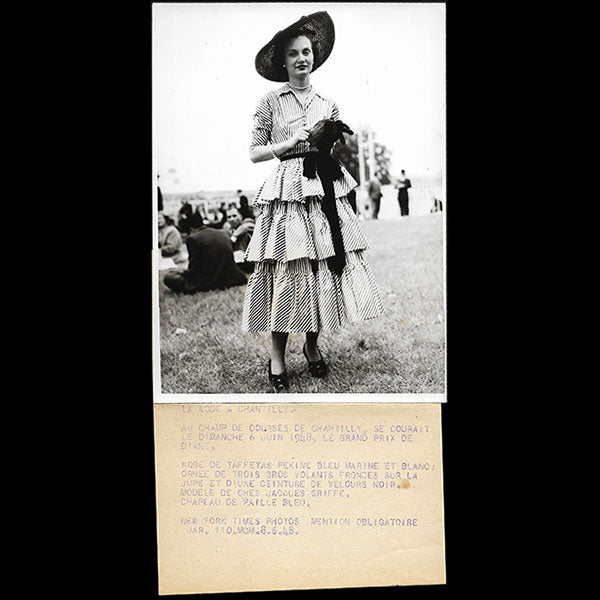 LA MODE A CHANTILLY.
AU CHAMP DE COURSES DE CHANTILLY, SE COURAIT
LE DIMANCHE 6 JUIN 1948, LE GRAND PRIX DE
DIANE.
ROBE DE TAFFETAS PEKINE BLEU MARINE ET BLANC:
ORNEE DE TROIS GROS VOLANTS FRONCES SUR LA
JUPE ET D'UNE CEINTURE DE VELOURS NOIR.
MODELE DE CHEZ JACQUES GRIFFE.
CHAPEAU DE PAILLE BLEU.
NEW YORK TIMES PHOTOS MENTION OBLIGATOIRE
JAR. 110.MCM.8.6.48.